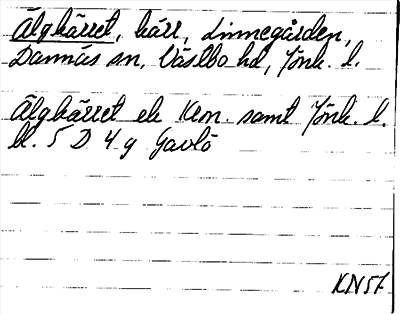 Älgkärret, kärr, Linnegården,
Dannäs sn, Västbo hd, Jönk. l.
Älgkärret ek Kron. samt Jönk. l.
bl. 5 D 4 g Gavlö
KN57